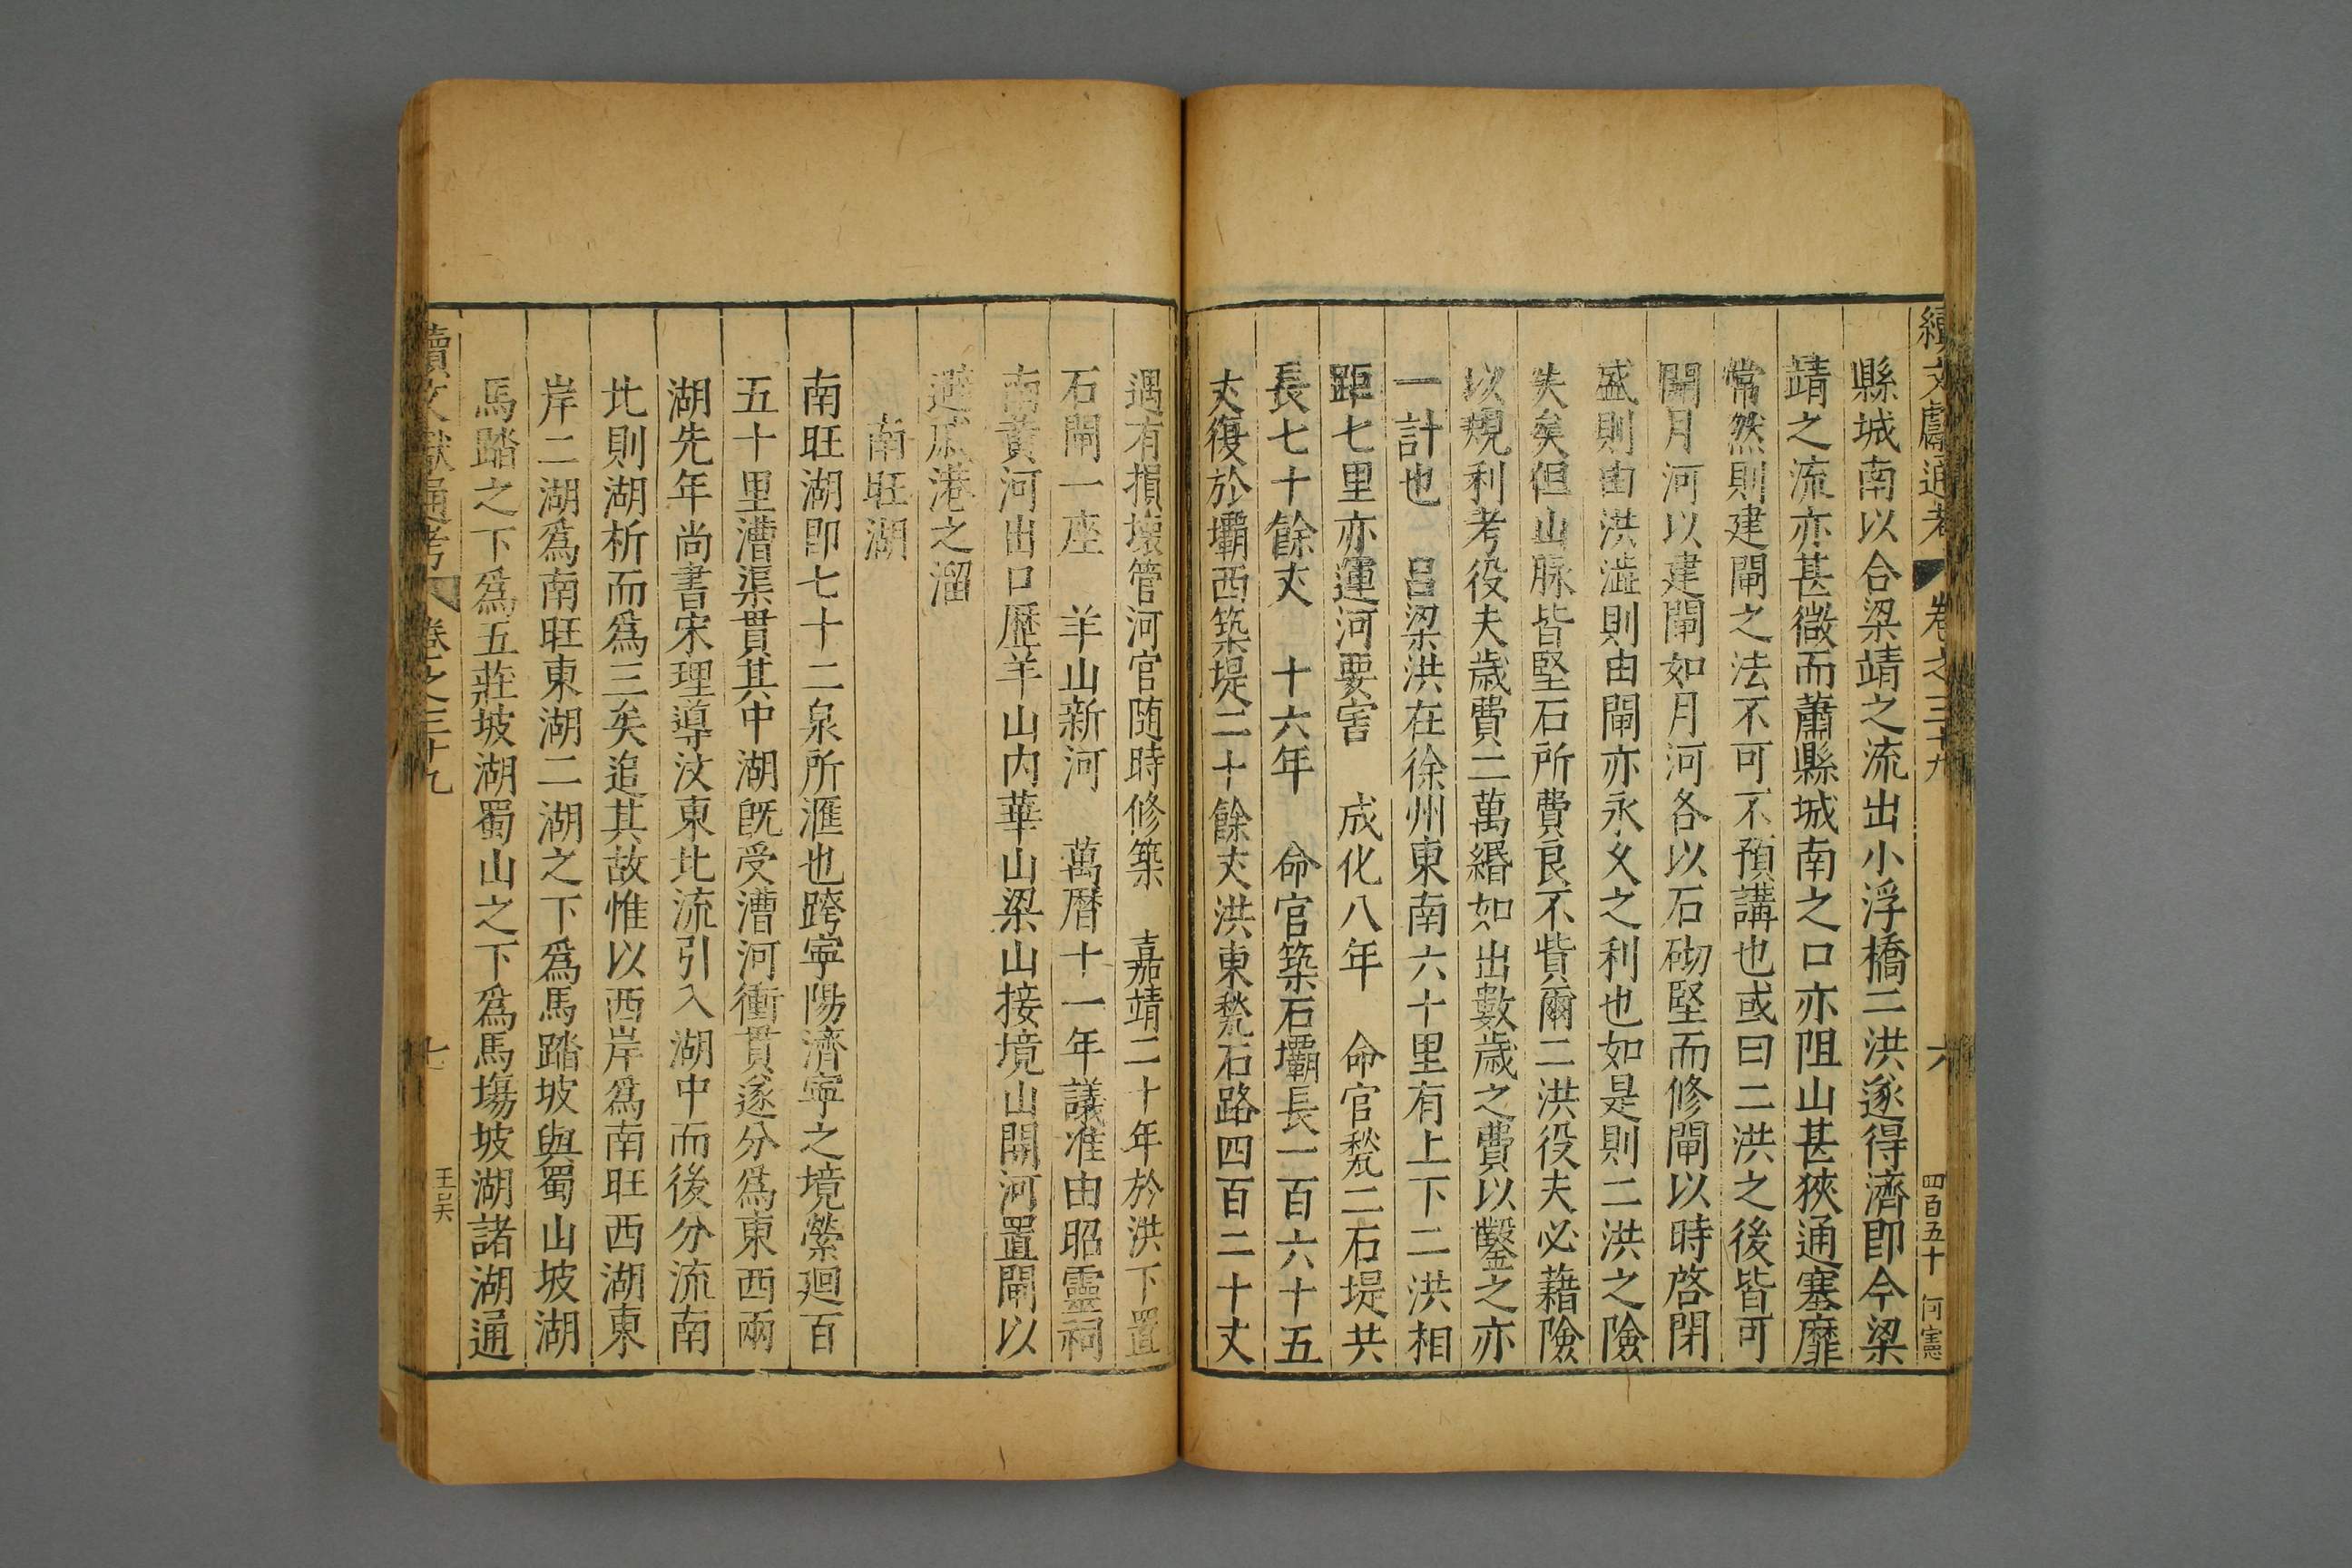 續文獻通考 卷之三十九 六 四百五十 何憲
縣城南以合梁靖之流出小浮橋二洪遂得濟即今梁
靖之流亦甚微而蕭縣城南之口亦阻山甚狹通塞靡
常然則建閘之法不可可不預講也或曰二洪之後皆可
開月河以建閘如月河各以石砌堅而修閘以時啓閉
盛則由洪澁則由閘亦永久之利也如是則二洪之險
失矣但山脉皆堅石所費良不貲爾二洪役夫必藉險
以覬利考役夫歲費二萬緡如出數歲之費以鑿之亦
一計也 呂梁洪在徐州東南六十里有上下二洪相
距七里亦運河要害 成化八年 命官甃二石堤共
長七十餘丈 十六年 命官築石壩長一百六十五
丈復於壩西築堤二十餘丈洪東甃石路四百二十丈
遇有損壞管河官随時修築 嘉靖二十年於洪下置
石閘一座 羊山新河 萬曆十一年議准由昭靈祠
南黃河出口歷羊山内華山梁山接境山開河置閘以
避 港之溜
南旺湖
南旺湖即七十二泉所滙也跨寧陽濟寧之境縈廻百
五十里漕渠貫其中湖旣受漕河衝貫遂分爲東西兩
湖先年尚書宋理導汶東北流引入湖中而後分流南
北則湖析而爲三矣追其故惟以西岸爲南旺西湖東
岸二湖爲南旺東湖二湖之下爲馬踏坡與蜀山坡湖
馬踏之下爲五莊坡湖蜀山之下爲馬塲坡湖諸湖通
續文獻通考 卷之三十九 七 王吴